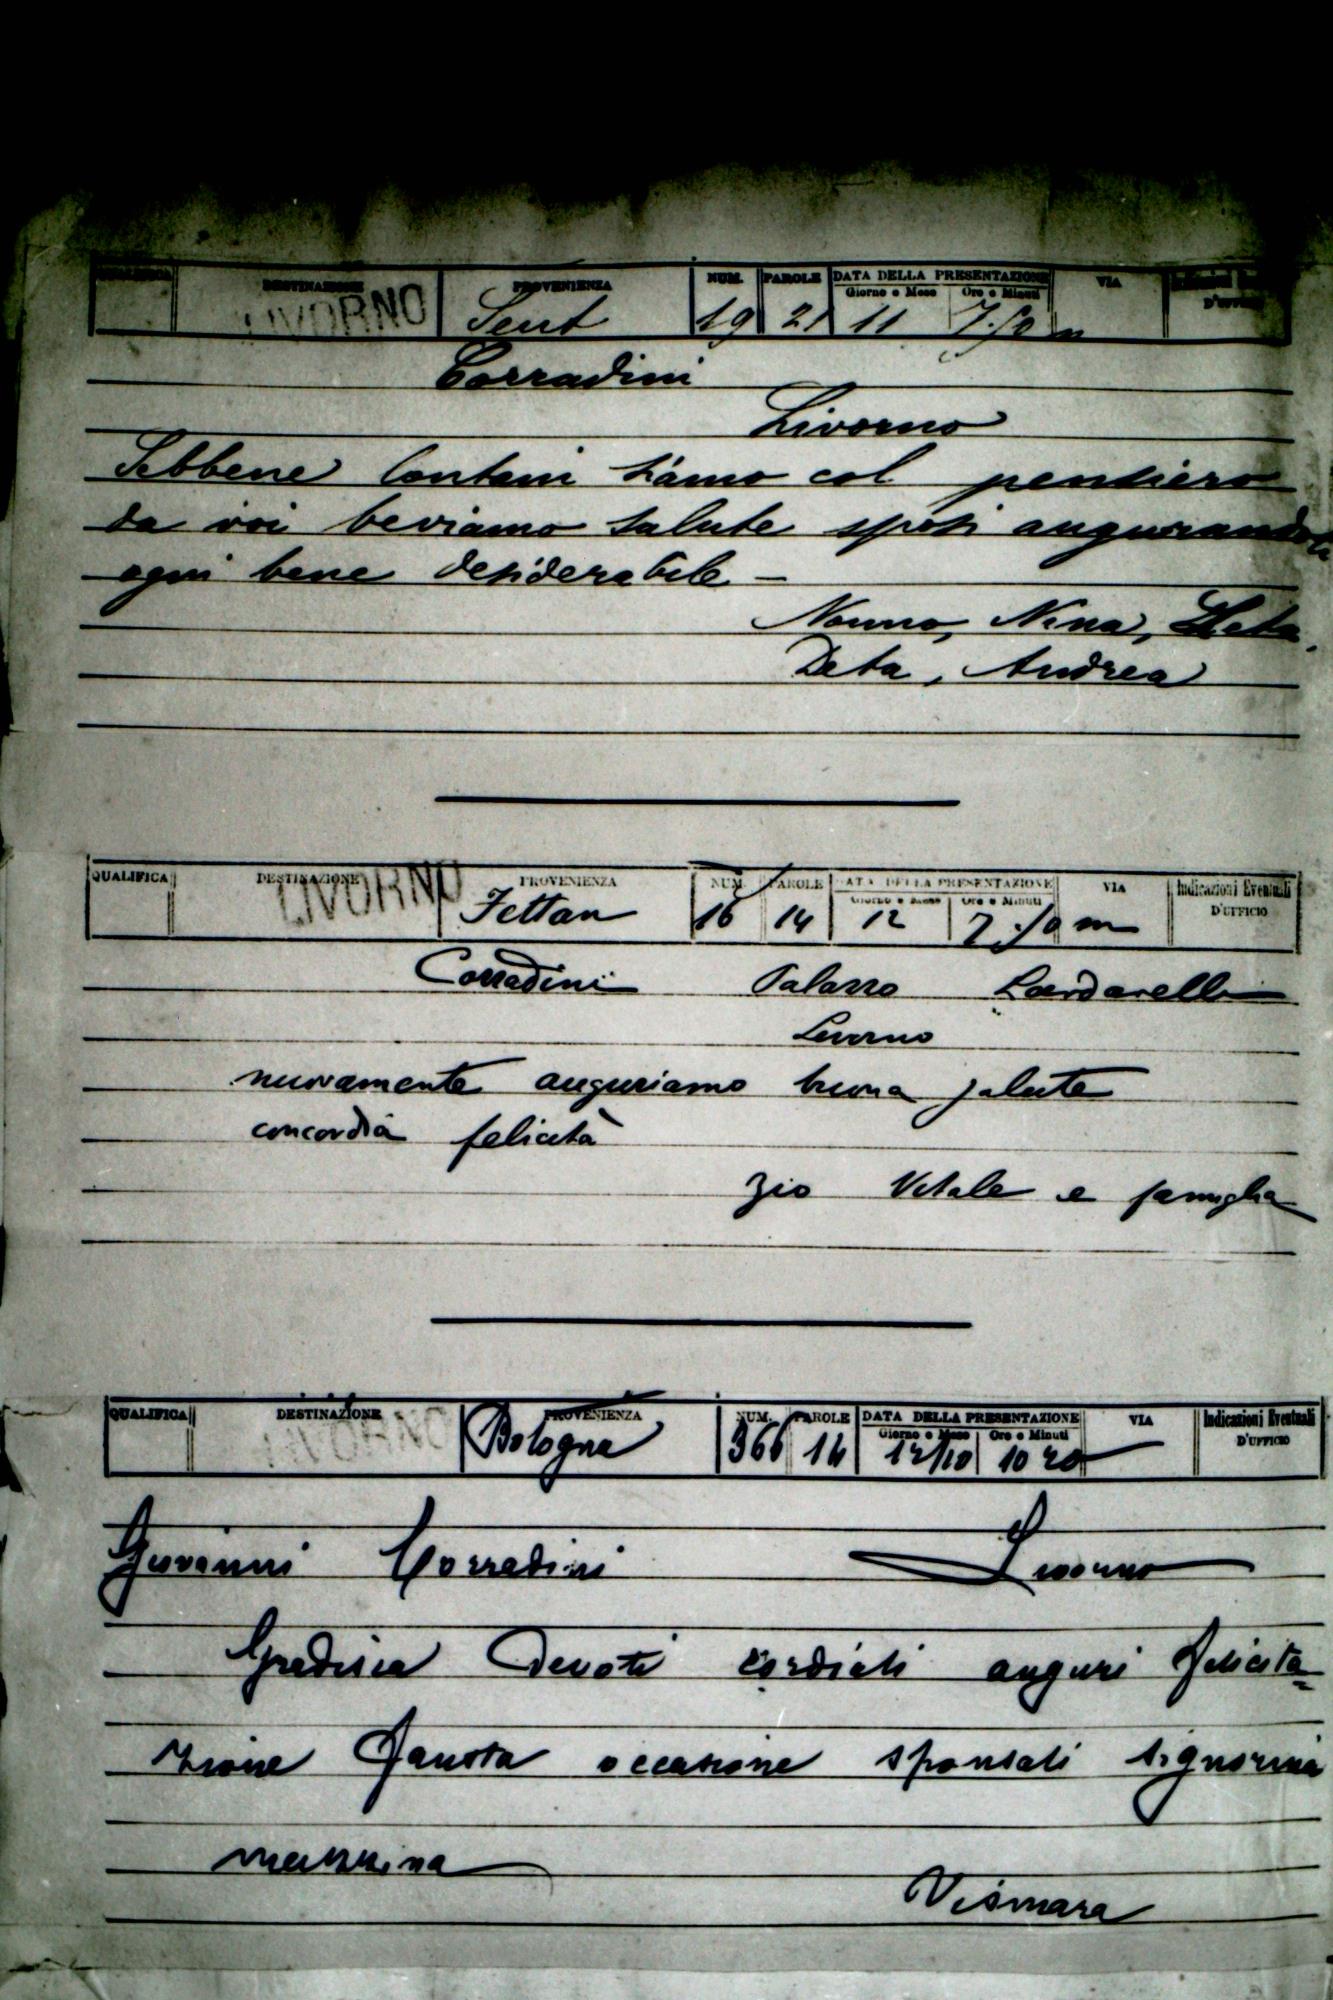 QUALIFICA DESTINAZIONE PROVENIENZA NUM. PAROLE DATA DELLA PRESENTAZIONE VIA Indicazioni Eventuali
Giorno e Mese Ore e Minuti D'UFFICIO
LIVORNO Sent 19 21 11 7.50 m
Corradini
Livorno
Sebbene lontani siamo col pensiero
da voi beviamo salute sposi augurando
ogni bene desiderabile -
Nonno, Nina,
Deta, Andrea
QUALIFICA DESTINAZIONE PROVENIENZA NUM. PAROLE DATA DELLA PRESENTAZIONE VIA Indicazioni Eventuali
Giorno e Mese Ore e Minuti D'UFFICIO
LIVORNO Fettan 16 14 12 7.50 m
Corradini Palazzo Lardarello
Livorno
nuovamente auguriamo buona salute
concordia felicità
zio Vitale e famiglia
QUALIFICA DESTINAZIONE PROVENIENZA NUM. PAROLE DATA DELLA PRESENTAZIONE VIA Indicazioni Eventuali
Giorno e Mese Ore e Minuti D'UFFICIO
LIVORNO Bologna 366 14 12/10 10 20
Giovanni Corradini Livorno
Gradisca devoti cordiali auguri felicita=
zione fausta occasione sponsali signorina
mazzina
Vismara